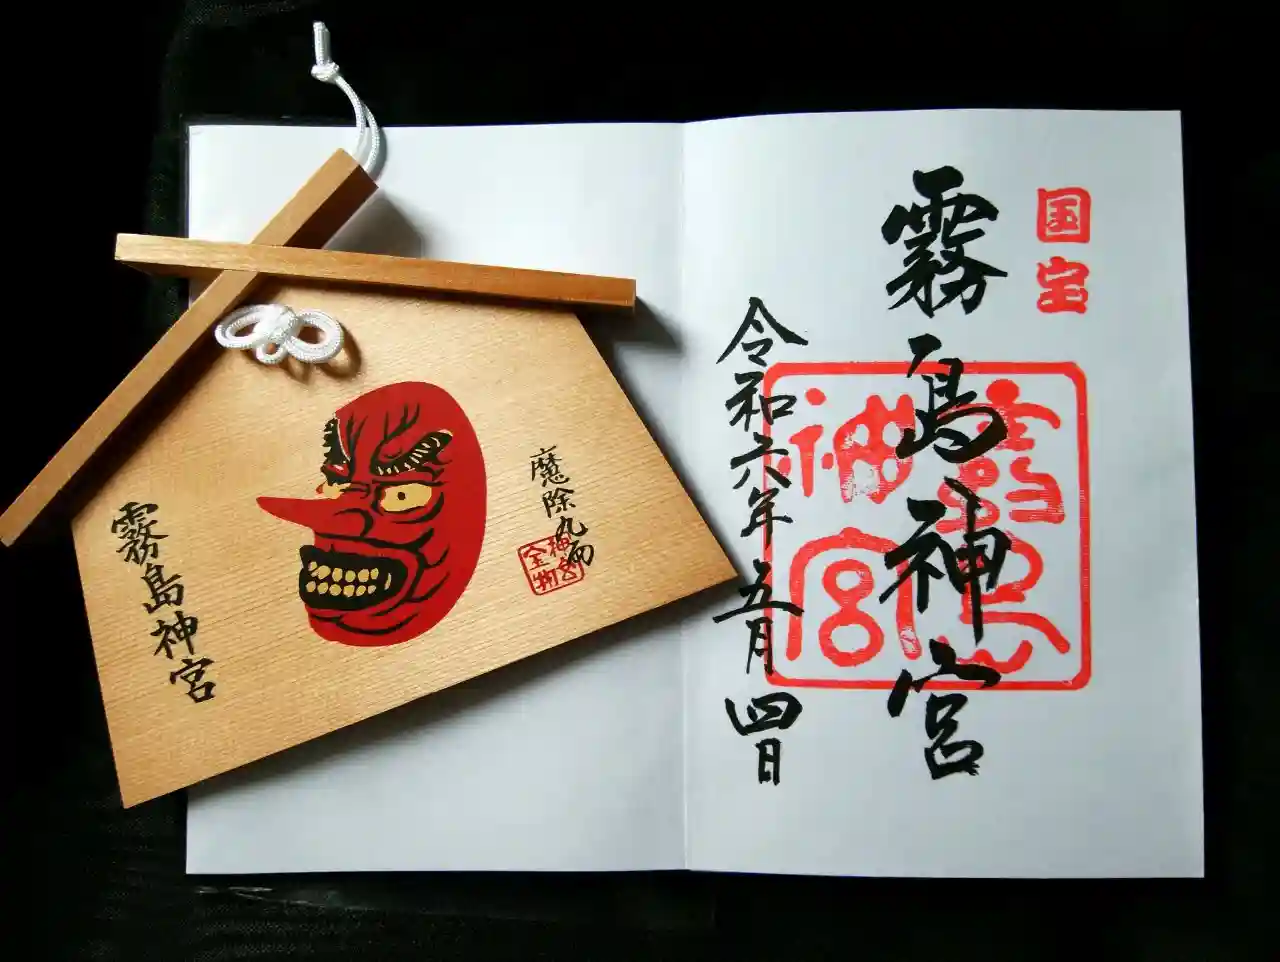 国宝
霧島神宮
霧島神宮
令和六年五月四日
魔除九面
神宮
宝物
霧島神宮